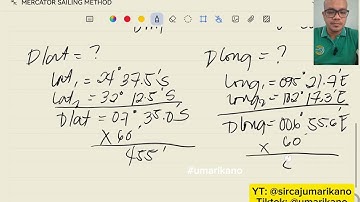 MERCATOR SAILING METHOD
Dlat = ?
Lat₁ = 24° 37.5'S
Lat₂ = 32° 12.5'S
Dlat = 07° 35.0'S
X 60
455'
Dlong = ?
Long₁ = 095° 21.7'E
Long₂ = 102° 17.3'E
Dlong = 006° 55.6'E
X 60
#umarikano
YT: @sircajumarikano
Tiktok: @umarikano